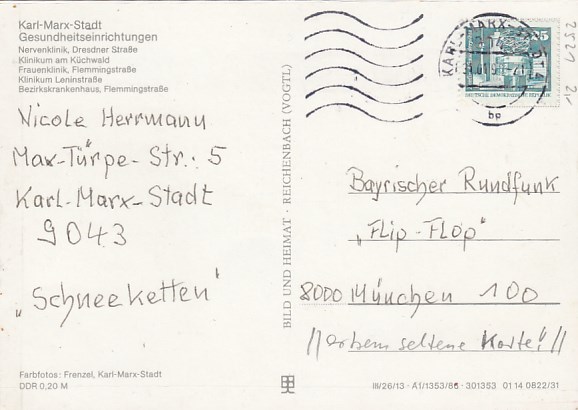 Karl-Marx-Stadt
Gesundheitseinrichtungen
Nervenklinik, Dresdner Straße
Klinikum am Küchwald
Frauenklinik, Flemmingstraße
Klinikum Leninstraße
Bezirkskrankenhaus, Flemmingstraße
Nicole Herrmann
Max-Türpe-Str.: 5
Karl-Marx-Stadt
9043
„Schneeketten"
Farbfotos: Frenzel, Karl-Marx-Stadt
DDR 0,20 M
BILD UND HEIMAT · REICHENBACH (VOGTL)
KARL-MARX-STADT
bp
25
2521
2,-
Bayrischer Rundfunk
„Flip-Flop"
8000 München 100
seltene Karte!
III/26/13 · A1/1353/86 · 301353 01 14 0822/31